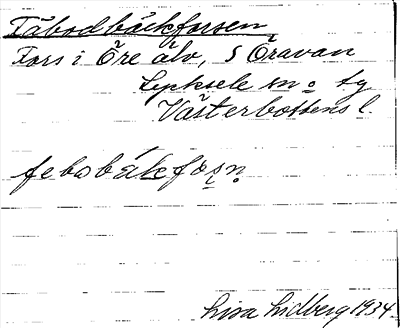 Täbodbäckforsen
Fors i Öre älv, S Öravan
Lycksele sn o. tg
Västerbottens l.
febobäkfors̥n̥
Lisa Lidberg 1934